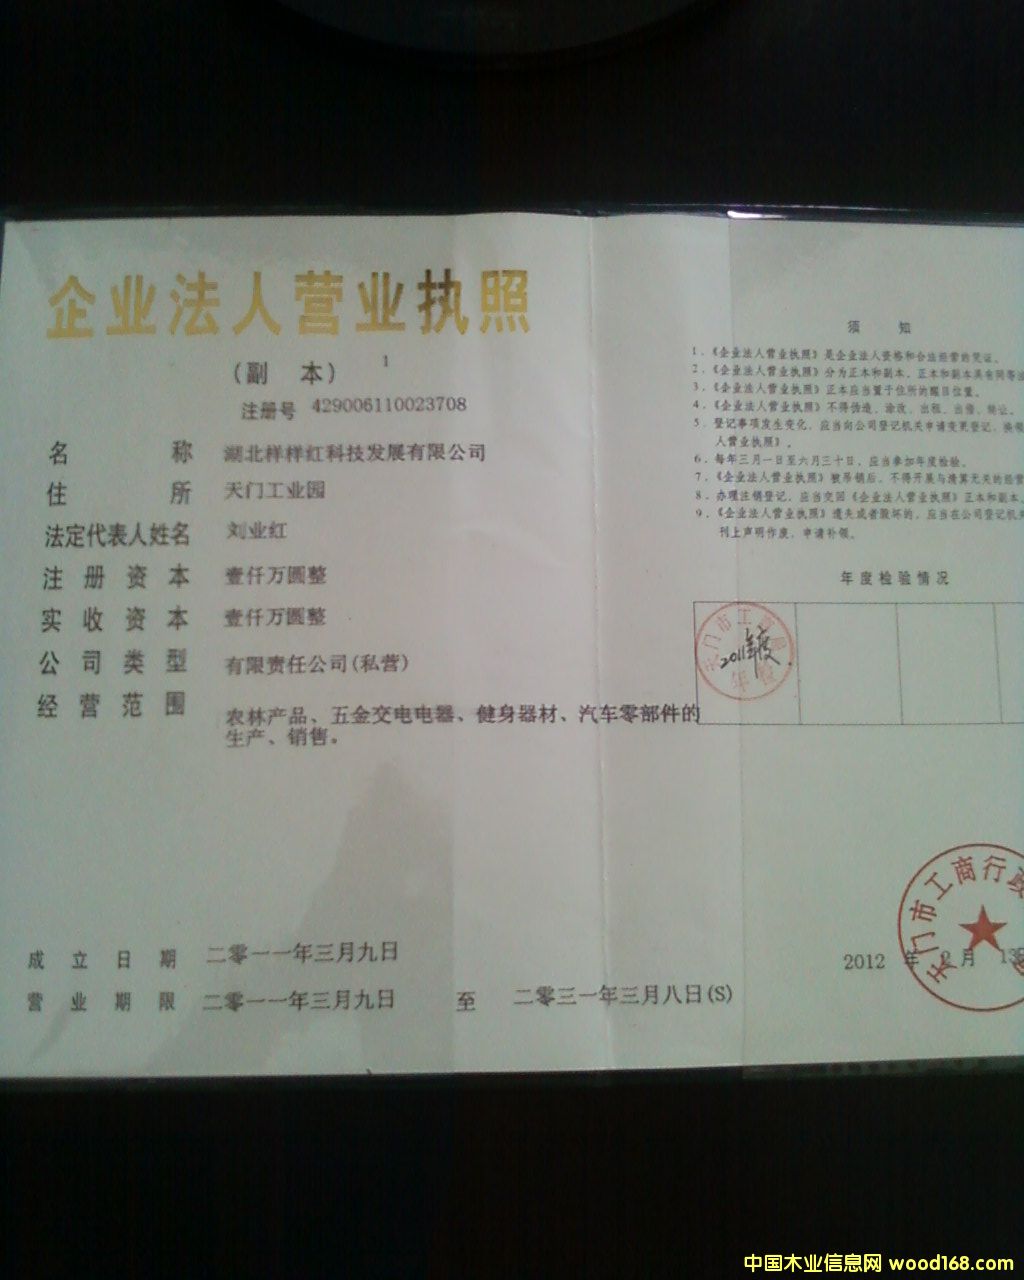 企业法人营业执照
(副 本) 1
注册号 429006110023708
名 称 湖北样样红科技发展有限公司
住 所 天门工业园
法定代表人姓名 刘业红
注册资本 壹仟万圆整
实收资本 壹仟万圆整
公司类型 有限责任公司(私营)
经营范围 农林产品、五金交电电器、健身器材、汽车零部件的
生产、销售。
成立日期 二零一一年三月九日
营业期限 二零一一年三月九日 至 二零三一年三月八日(S)
须 知
1.《企业法人营业执照》是企业法人资格和合法经营的凭证。
2.《企业法人营业执照》分为正本和副本，正本和副本具有同等法
3.《企业法人营业执照》正本应当置于住所的醒目位置。
4.《企业法人营业执照》不得伪造、涂改、出租、出借、转让。
5.登记事项发生变化，应当向公司登记机关申请变更登记，换领
人营业执照》。
6.每年三月一日至六月三十日，应当参加年度检验。
7.《企业法人营业执照》被吊销后，不得开展与清算无关的经营
8.办理注销登记，应当交回《企业法人营业执照》正本和副本。
9.《企业法人营业执照》遗失或者毁坏的，应当在公司登记机关
刊上声明作废，申请补领。
年度检验情况
天门市工商局
2011年度
年检
天门市工商行政
2012 年 月
中国木业信息网 wood168.com